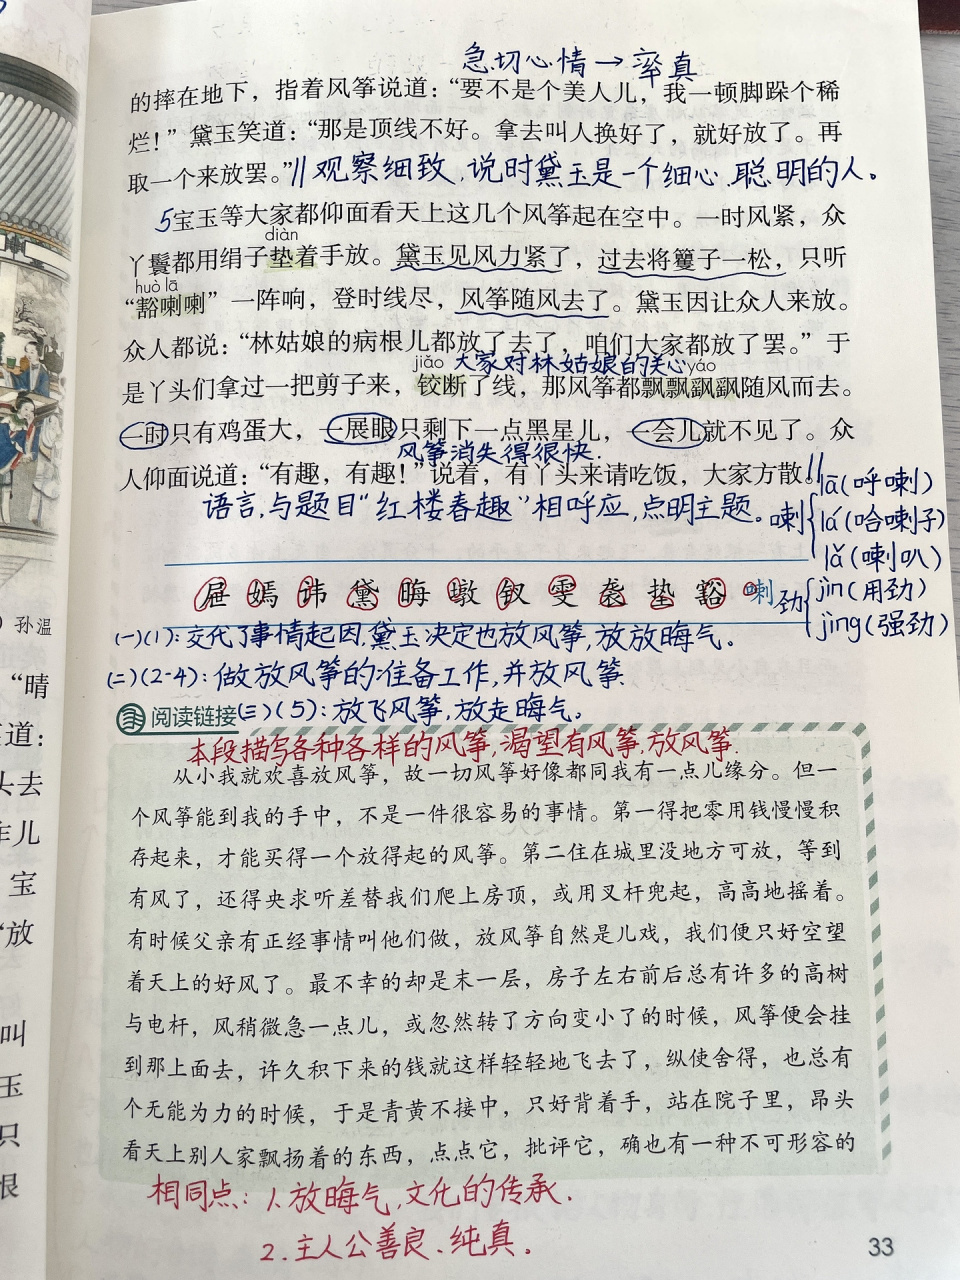 急切心情→率真
的摔在地下，指着风筝说道：“要不是个美人儿，我一顿脚跺个稀
烂！”黛玉笑道：“那是顶线不好。拿去叫人换好了，就好放了。再
取一个来放罢。”∥观察细致，说时黛玉是一个细心、聪明的人。
5宝玉等大家都仰面看天上这几个风筝起在空中。一时风紧，众
diàn
丫鬟都用绢子垫着手放。黛玉见风力紧了，过去将籰子一松，只听
huò lā
“豁喇喇”一阵响，登时线尽，风筝随风去了。黛玉因让众人来放。
众人都说：“林姑娘的病根儿都放了去了，咱们大家都放了罢。”于
jiǎo 大家对林姑娘的关心 yáo
是丫头们拿过一把剪子来，铰断了线，那风筝都飘飘飖飖随风而去。
一时只有鸡蛋大，一展眼只剩下一点黑星儿，一会儿就不见了。众
风筝消失得很快.
人仰面说道：“有趣，有趣！”说着，有丫头来请吃饭，大家方散。∥
语言，与题目“红楼春趣”相呼应，点明主题。
喇
lā(呼喇)
lá(哈喇子)
lǎ(喇叭)
屉 嫣 讳 黛 晦 墩 钗 雯 袭 垫 豁 喇
劲
jìn(用劲)
jìng(强劲)
(一)(1)：交代了事情起因，黛玉决定也放风筝，放放晦气。
(二)(2-4)：做放风筝的准备工作，并放风筝.
阅读链接
(三)(5)：放飞风筝，放走晦气。
本段描写各种各样的风筝，渴望有风筝，放风筝.
从小我就欢喜放风筝，故一切风筝好像都同我有一点儿缘分。但一
个风筝能到我的手中，不是一件很容易的事情。第一得把零用钱慢慢积
存起来，才能买得一个放得起的风筝。第二住在城里没地方可放，等到
有风了，还得央求听差替我们爬上房顶，或用叉杆兜起，高高地摇着。
有时候父亲有正经事情叫他们做，放风筝自然是儿戏，我们便只好空望
着天上的好风了。最不幸的却是末一层，房子左右前后总有许多的高树
与电杆，风稍微急一点儿，或忽然转了方向变小了的时候，风筝便会挂
到那上面去，许久积下来的钱就这样轻轻地飞去了，纵使舍得，也总有
个无能为力的时候，于是青黄不接中，只好背着手，站在院子里，昂头
看天上别人家飘扬着的东西，点点它，批评它，确也有一种不可形容的
相同点：1.放晦气，文化的传承.
2.主人公善良、纯真。
33
孙温
“晴
道：
头去
作儿
宝
“放
叫
玉
只
根